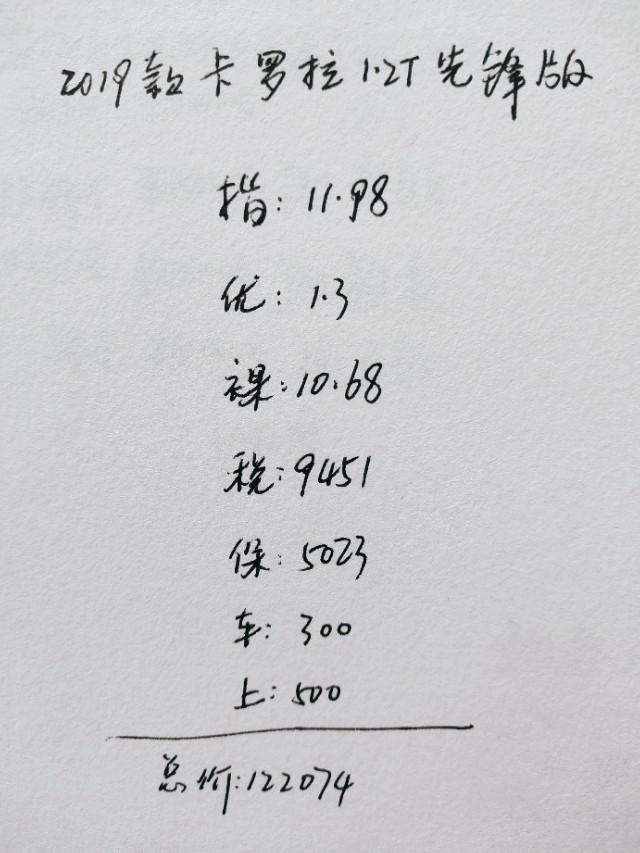 2019款卡罗拉1.2T先锋版
指: 11.98
优: 1.3
裸: 10.68
税: 9451
保: 5023
车: 300
上: 500
总价: 122074